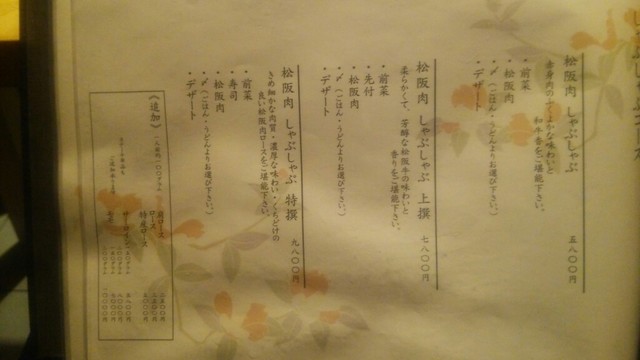 松阪肉 しゃぶしゃぶ
五八〇〇円
赤身肉のふくよかな味わいと
和牛香をご堪能下さい。
・前菜
・松阪肉
・〆(ごはん・うどんよりお選び下さい。)
・デザート
松阪肉 しゃぶしゃぶ 上撰
七八〇〇円
柔らかくて、芳醇な松阪牛の味わいと
香りをご堪能下さい。
・前菜
・先付
・松阪肉
・〆(ごはん・うどんよりお選び下さい。)
・デザート
松阪肉 しゃぶしゃぶ 特撰
九八〇〇円
きめ細かな肉質・濃厚な味わい・くちどけの
良い松阪肉ロースをご堪能下さい。
・前菜
・松阪肉
・寿司
・〆(ごはん・うどんよりお選び下さい。)
・デザート
《追加》
一人前 一〇〇グラム
肩ロース
ロース
特撰ロース